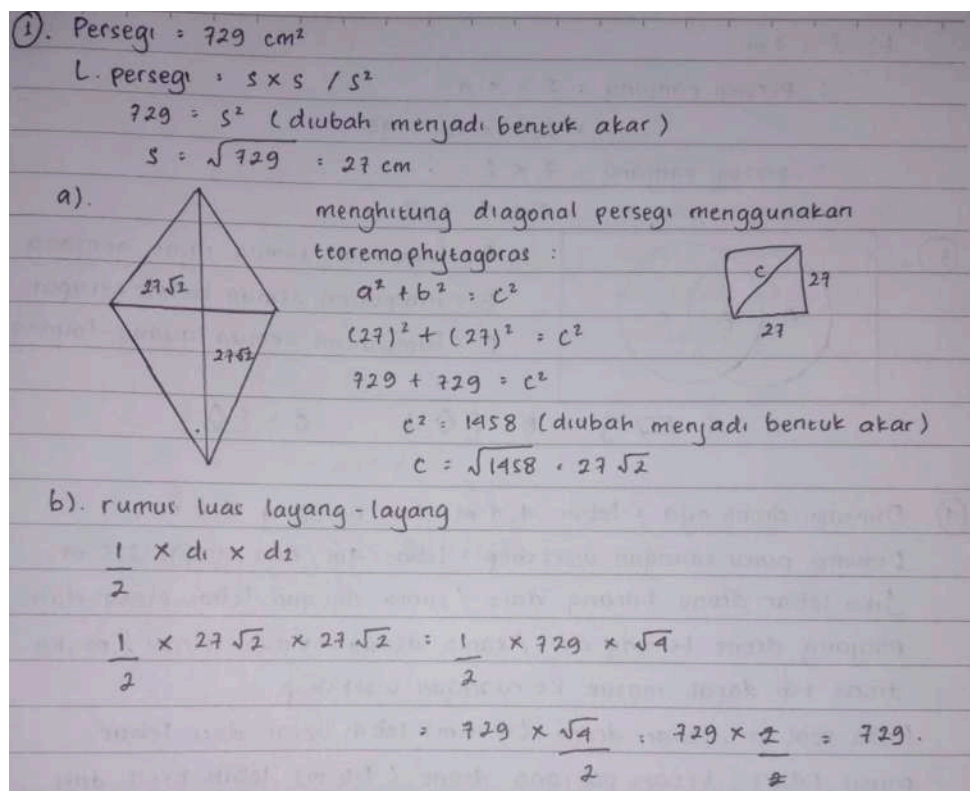 ①. Persegi = 729 cm²
L. persegi = s x s / s²
729 = s² (diubah menjadi bentuk akar)
s = √729 = 27 cm
a).
menghitung diagonal persegi menggunakan
teorema phytagoras :
a² + b² = c²
(27)² + (27)² = c²
729 + 729 = c²
c² = 1458 (diubah menjadi bentuk akar)
c = √1458 = 27√2
27√2
27√2
c
27
27
b). rumus luas layang-layang
1/2 x d₁ x d₂
1/2 x 27√2 x 27√2 = 1/2 x 729 x √4
= 729 x √4/2 = 729 x 2/2 = 729.